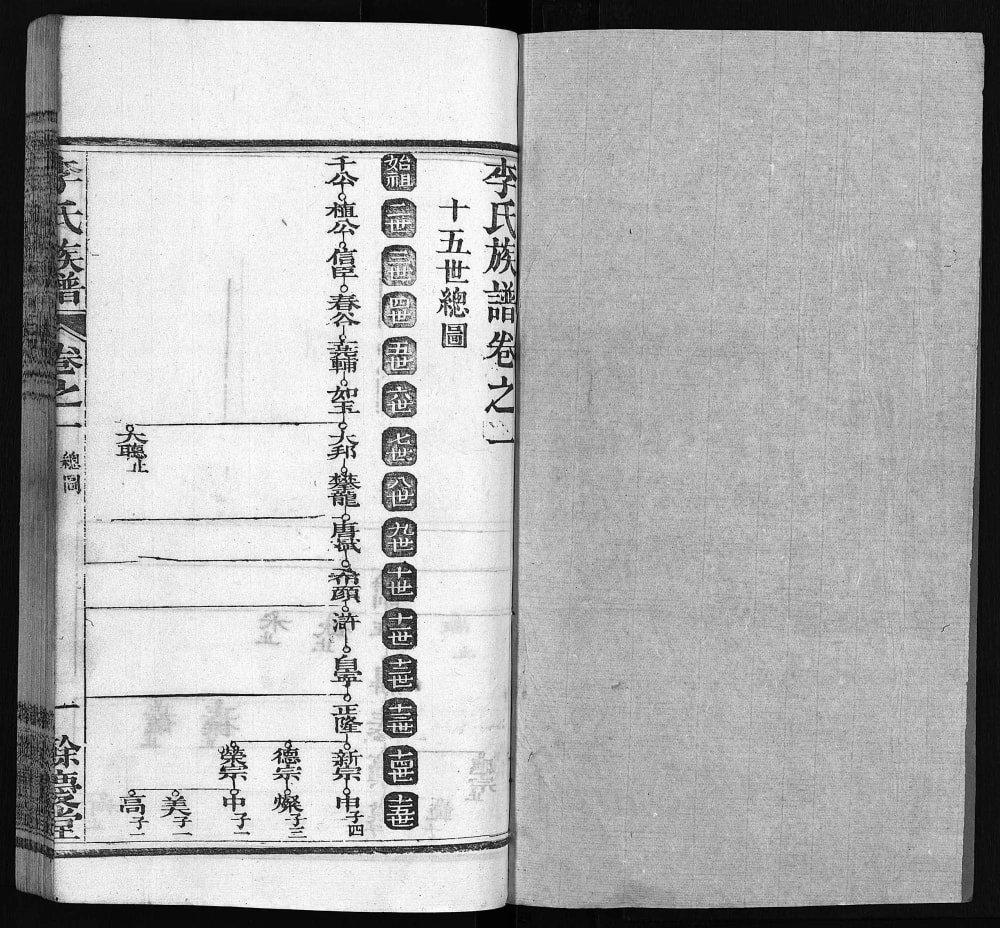 李氏族譜卷之一
十五世總圖
始祖 二世 三世 四世 五世 六世 七世 八世 九世 十世 十一世 十二世 十三世 十四世 十五世
千公 植公 信臣 春谷 輔 如玉 大邦 攀龍 唐 希顔 滸 正隆 新宗 申子四
德宗 燦子三
榮宗 中子二
美子一
大聰止 高子一
李氏族譜 卷之一 總圖 一 餘慶堂